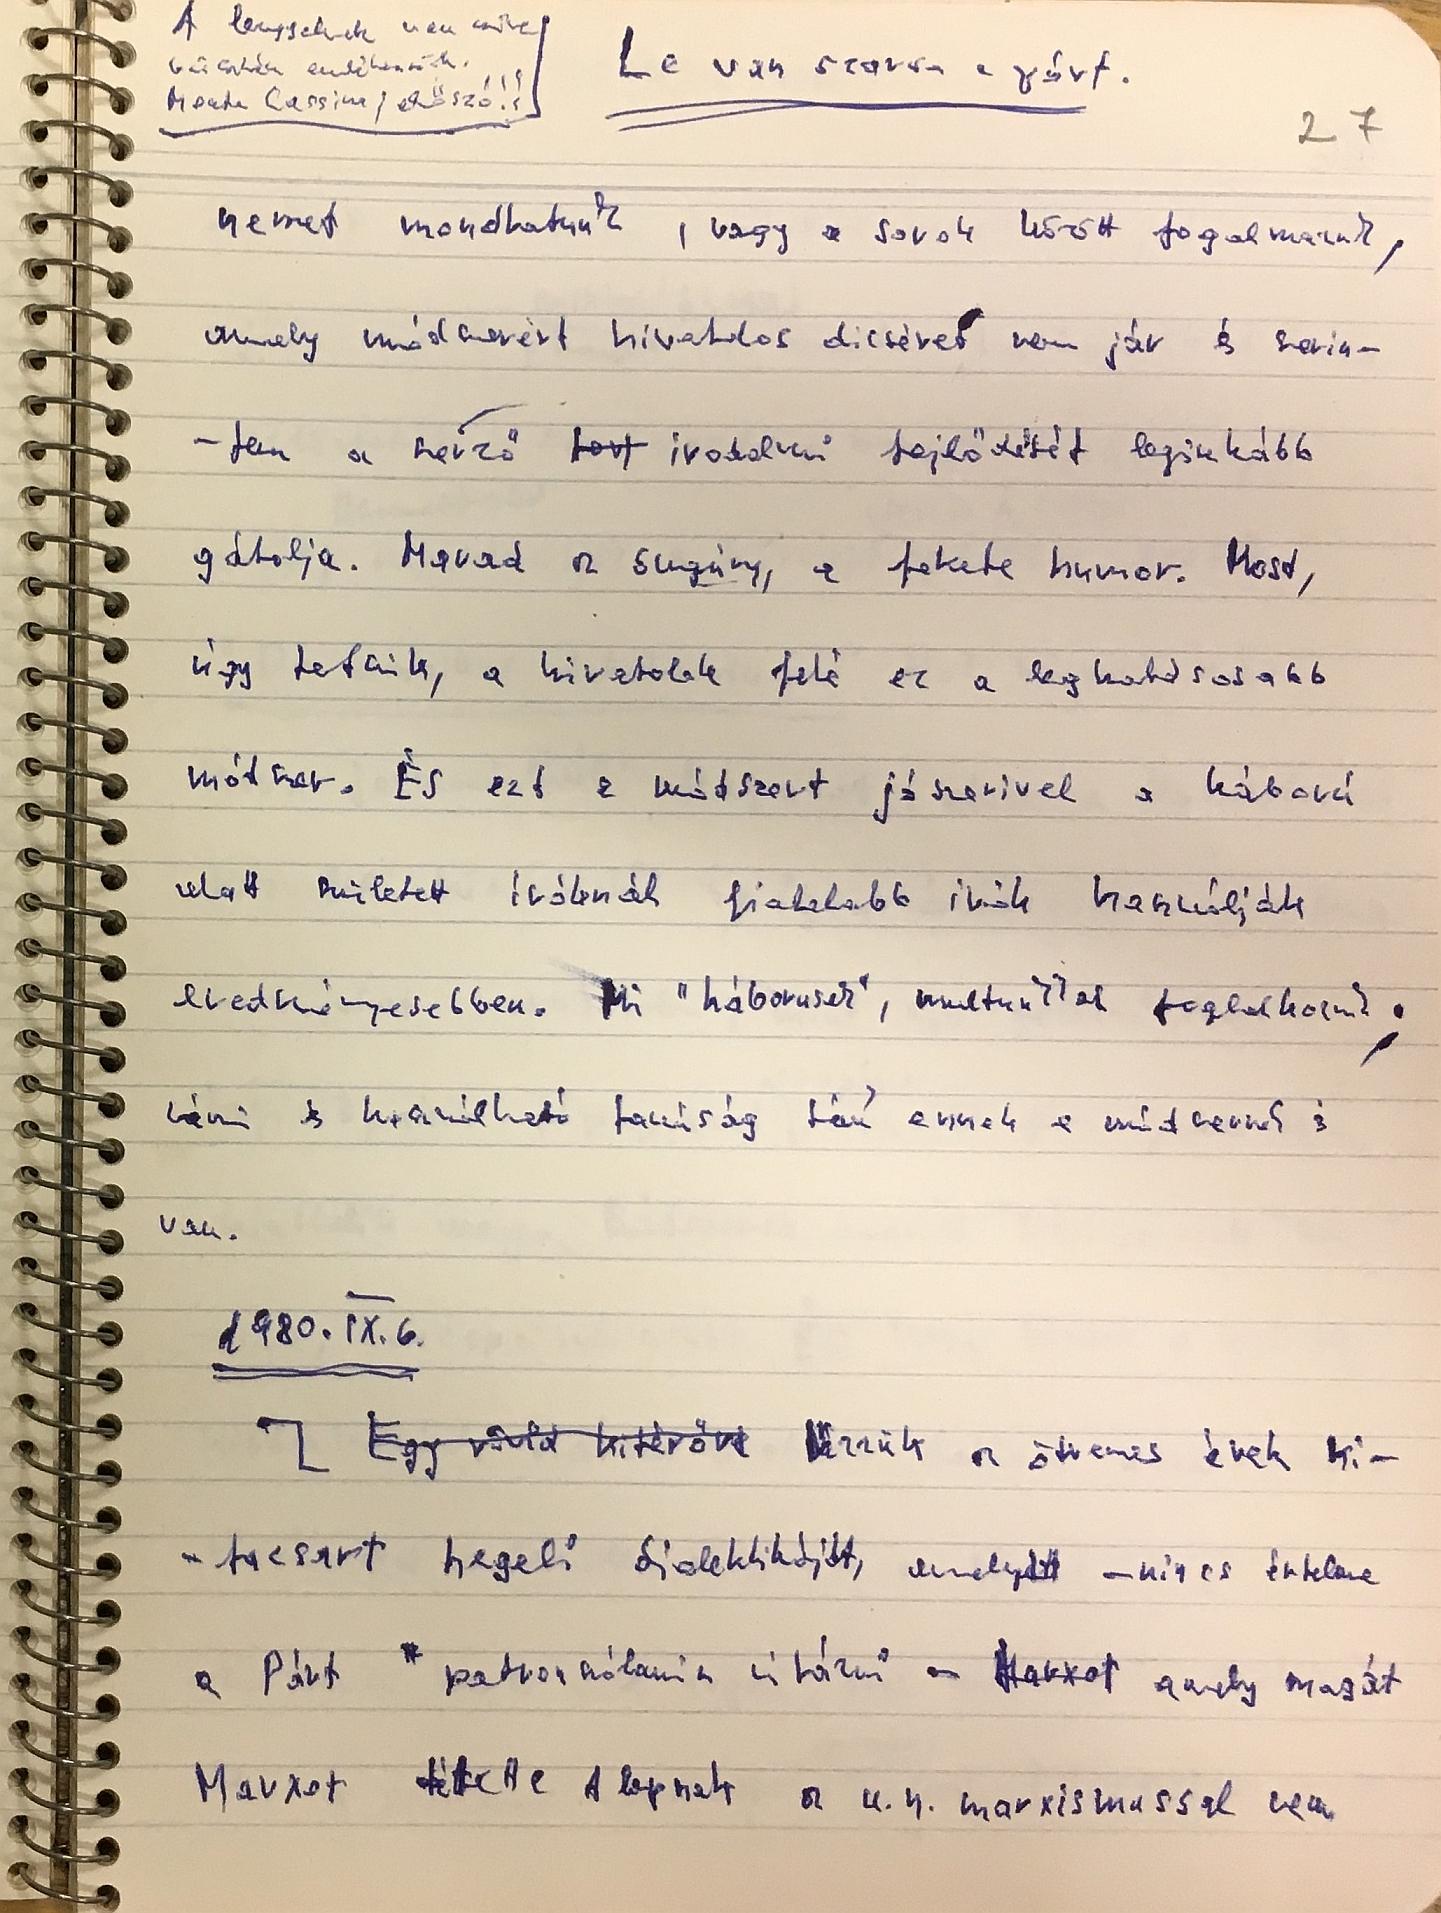 A lengyeleknek van mire
emlékezniök.
Monte Cassino, előszó!!
Le van szarva a párt.
27
nemet mondhatunk, vagy a sorok között fogalmazni,
amely módszerért hivatalos dicséret nem jár és szerin-
-tem a szerző irodalmi fejlődését leginkább
gátolja. Marad az
a fekete humor. Most,
úgy tetszik, a hivatalok felé ez a leghatásosabb
módszer. És ezt a módszert jószerivel a háború
alatt született íróknál fiatalabb írók használják
eredményesebben. Mi "háborusok", multunkkal foglalkozni,
és használható tanúság
ennek a módszernek is
van.
1980. IX. 6.
Egy rövid kitérőre Nézzük az ötvenes évek ki-
-facsart hegeli dialektikáját, amely
-nincs értelme
a Párt
- Marxot amely magát
Marxot tette Alapnak az u.n. marxismussal nem